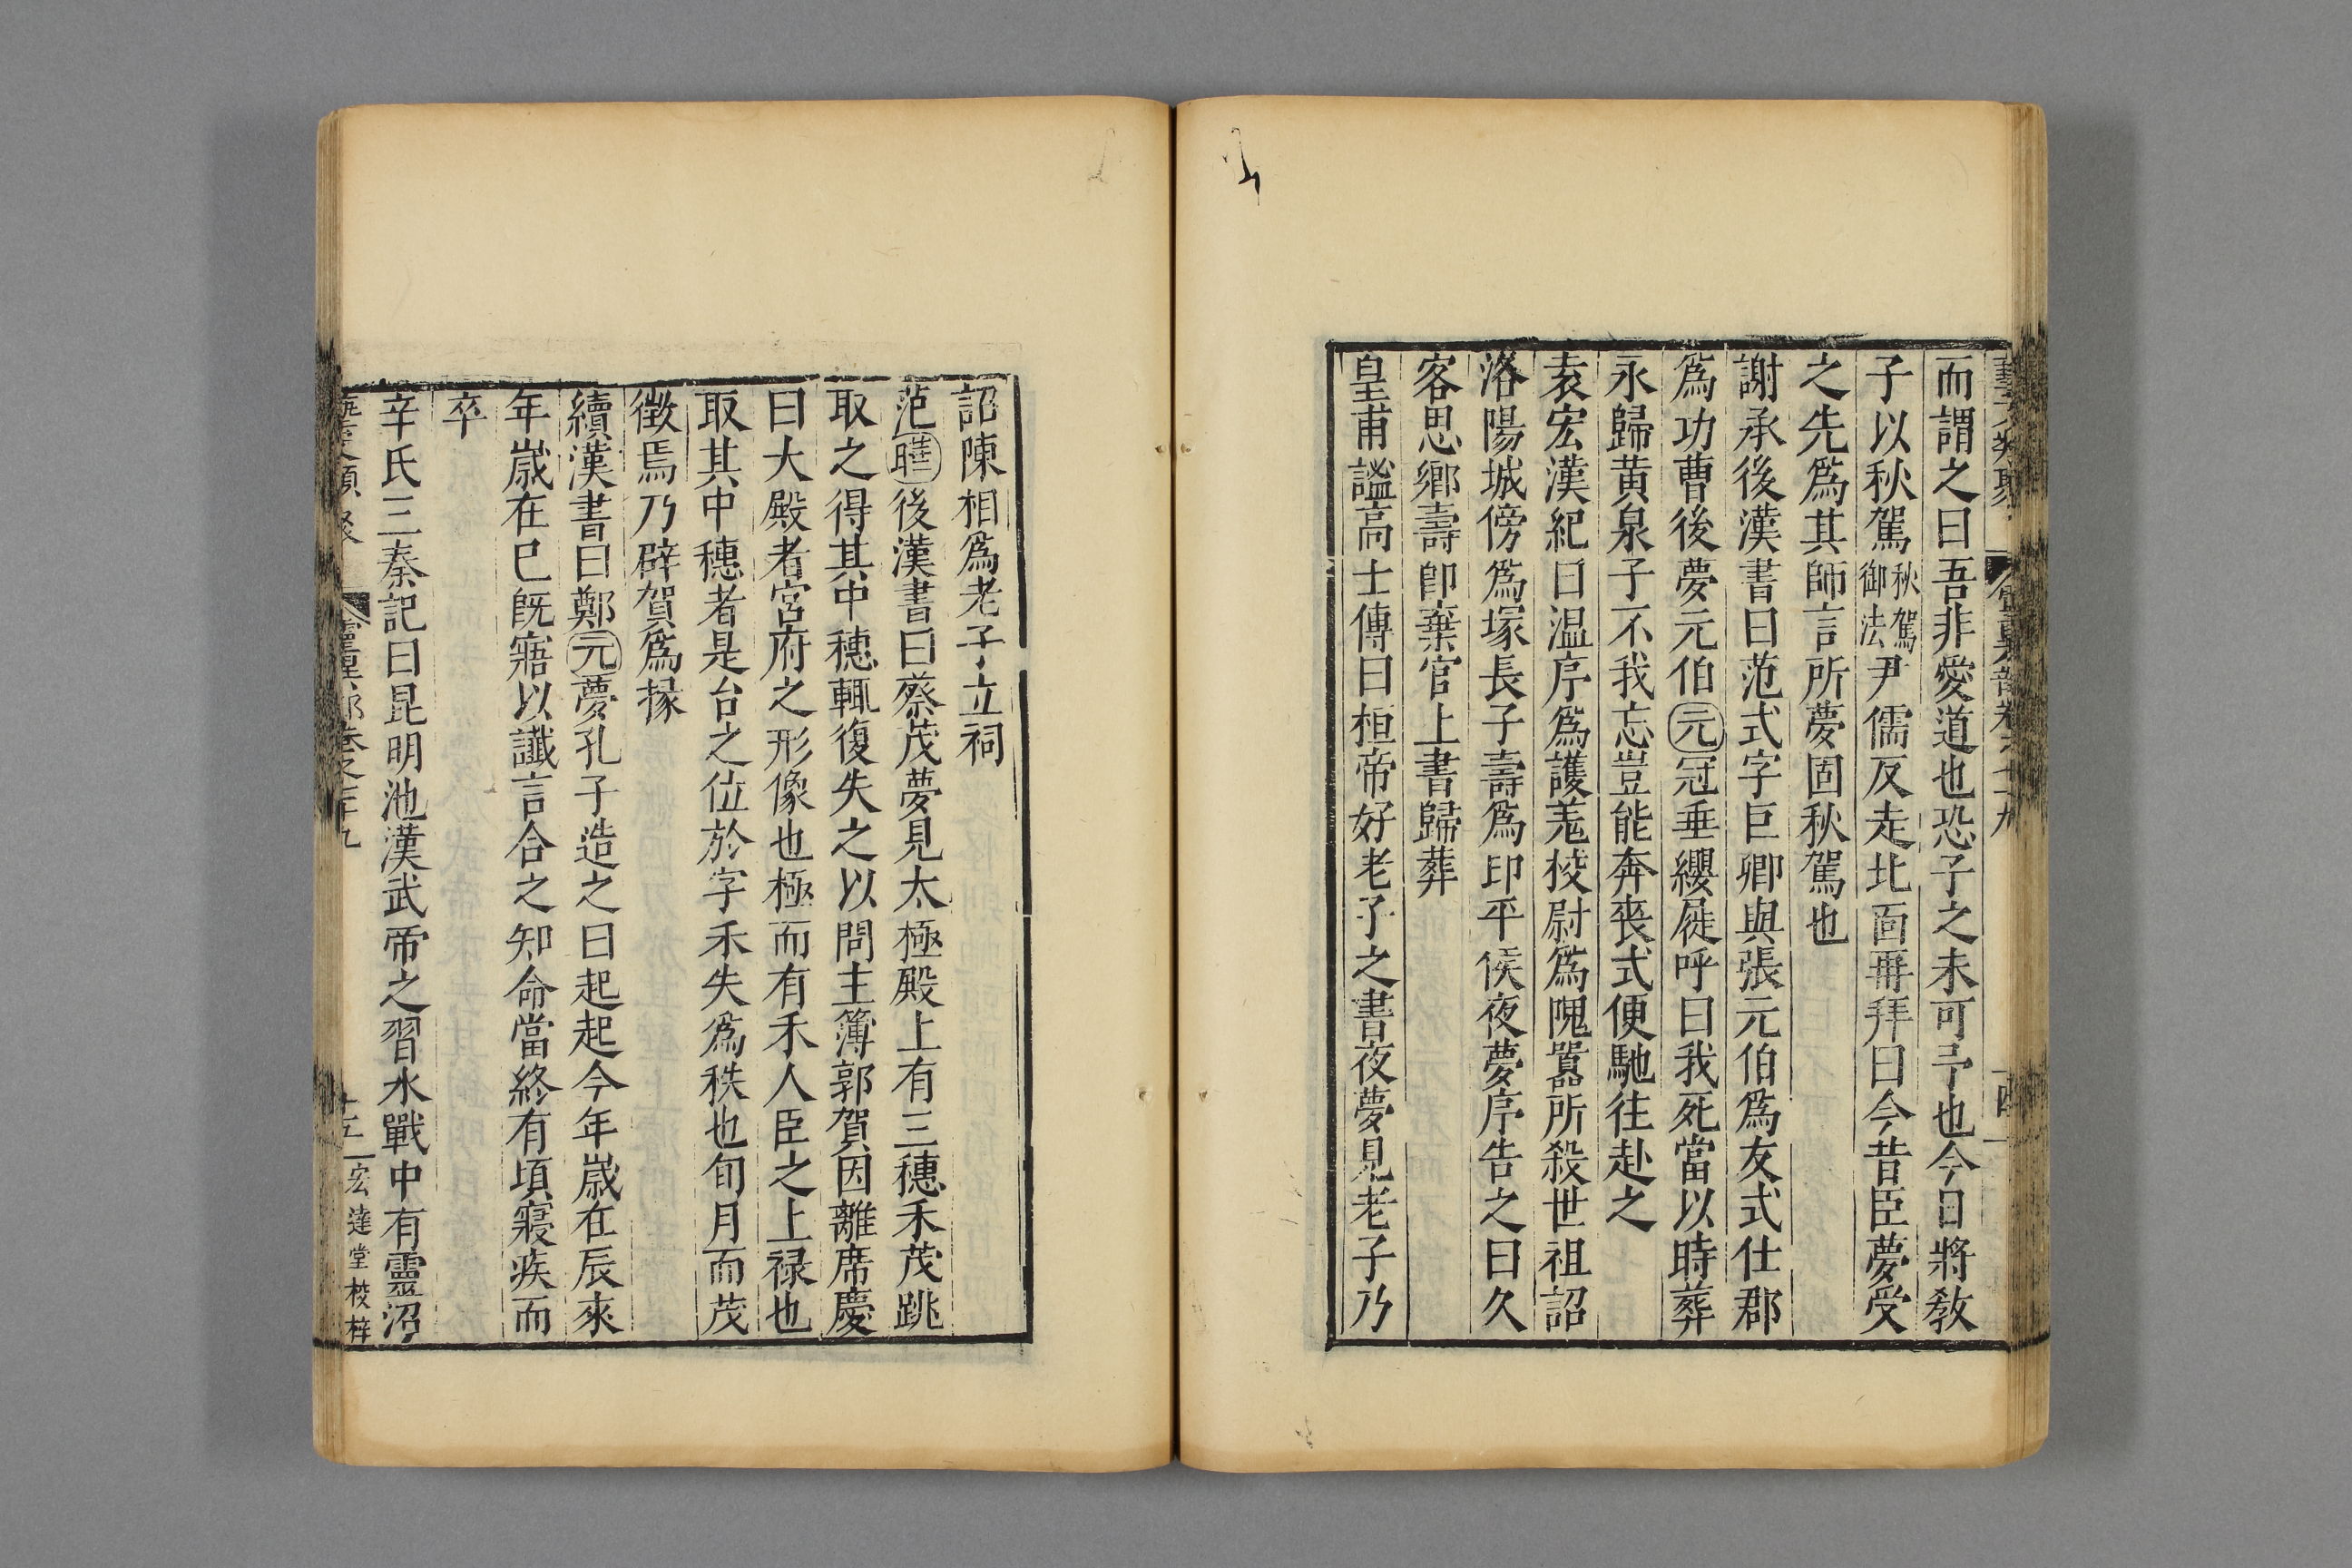 而謂之曰吾非愛道也恐子之未可予也今日將教
子以秋駕秋駕御法尹儒反走北面再拜曰今昔臣夢受
之先爲其師言所夢固秋駕也
謝承後漢書曰范式字巨卿與張元伯爲友式仕郡
爲功曹後夢元伯元冠垂纓屣呼曰我死當以時葬
永歸黄泉子不我忘豈能奔喪式便馳往赴之
袁宏漢紀曰温序爲護羗校尉爲隗囂所殺世祖詔
洛陽城傍爲塚長子壽爲印平侯夜夢序告之曰久
客思鄉壽卽棄官上書歸葬
皇甫謐高士傳曰桓帝好老子之書夜夢見老子乃
詔陳相爲老子立祠
范曄後漢書曰蔡茂夢見太極殿上有三穗禾茂跳
取之得其中穗輒復失之以問主簿郭賀因離席慶
曰大殿者宮府之形像也極而有禾人臣之上禄也
取其中穗者是台之位於字禾失爲秩也旬月而茂
徵焉乃辟賀爲掾
續漢書曰鄭元夢孔子造之曰起起今年歲在辰來
年歲在巳旣寤以讖言合之知命當終有頃寢疾而
卒
辛氏三秦記曰昆明池漢武帝之習水戰中有靈沼
十五 宏達堂校梓